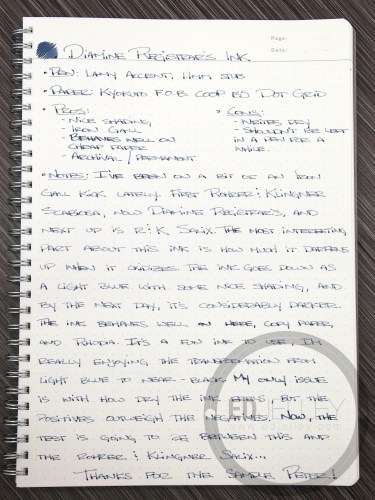 Page:
Date:
Diamine Registrar's Ink
• Pen: Lamy Accent, 1.1mm stub
• Paper: Kyokuto F.O.B. COOP B5 Dot Grid
• Pros:
- Nice shading,
- Iron Gall
- Behaves well on
cheap paper
- Archival / Permanent
• Cons:
- Writes dry
- Shouldn't be left
in a pen for a
while.
• Notes: I've been on a bit of an Iron
Gall kick lately. First Rohrer & Klingner
Scabosa, now Diamine Registrar's, and
next up is R&K Salix. The most interesting
part about this ink is how much it darkens
up when it oxidizes. The ink goes down as
a light blue with some nice shading, and
by the next day, it's considerably darker.
The ink behaves well on here, copy paper,
and Rhodia. It's a fun ink to use, I'm
really enjoying the transformation from
light blue to near-black. My only issue
is with how dry the ink feels, but the
positives outweigh the negatives. Now, the
test is going to be between this and
the Rohrer & Klingner Salix...
Thanks for the sample Peter!